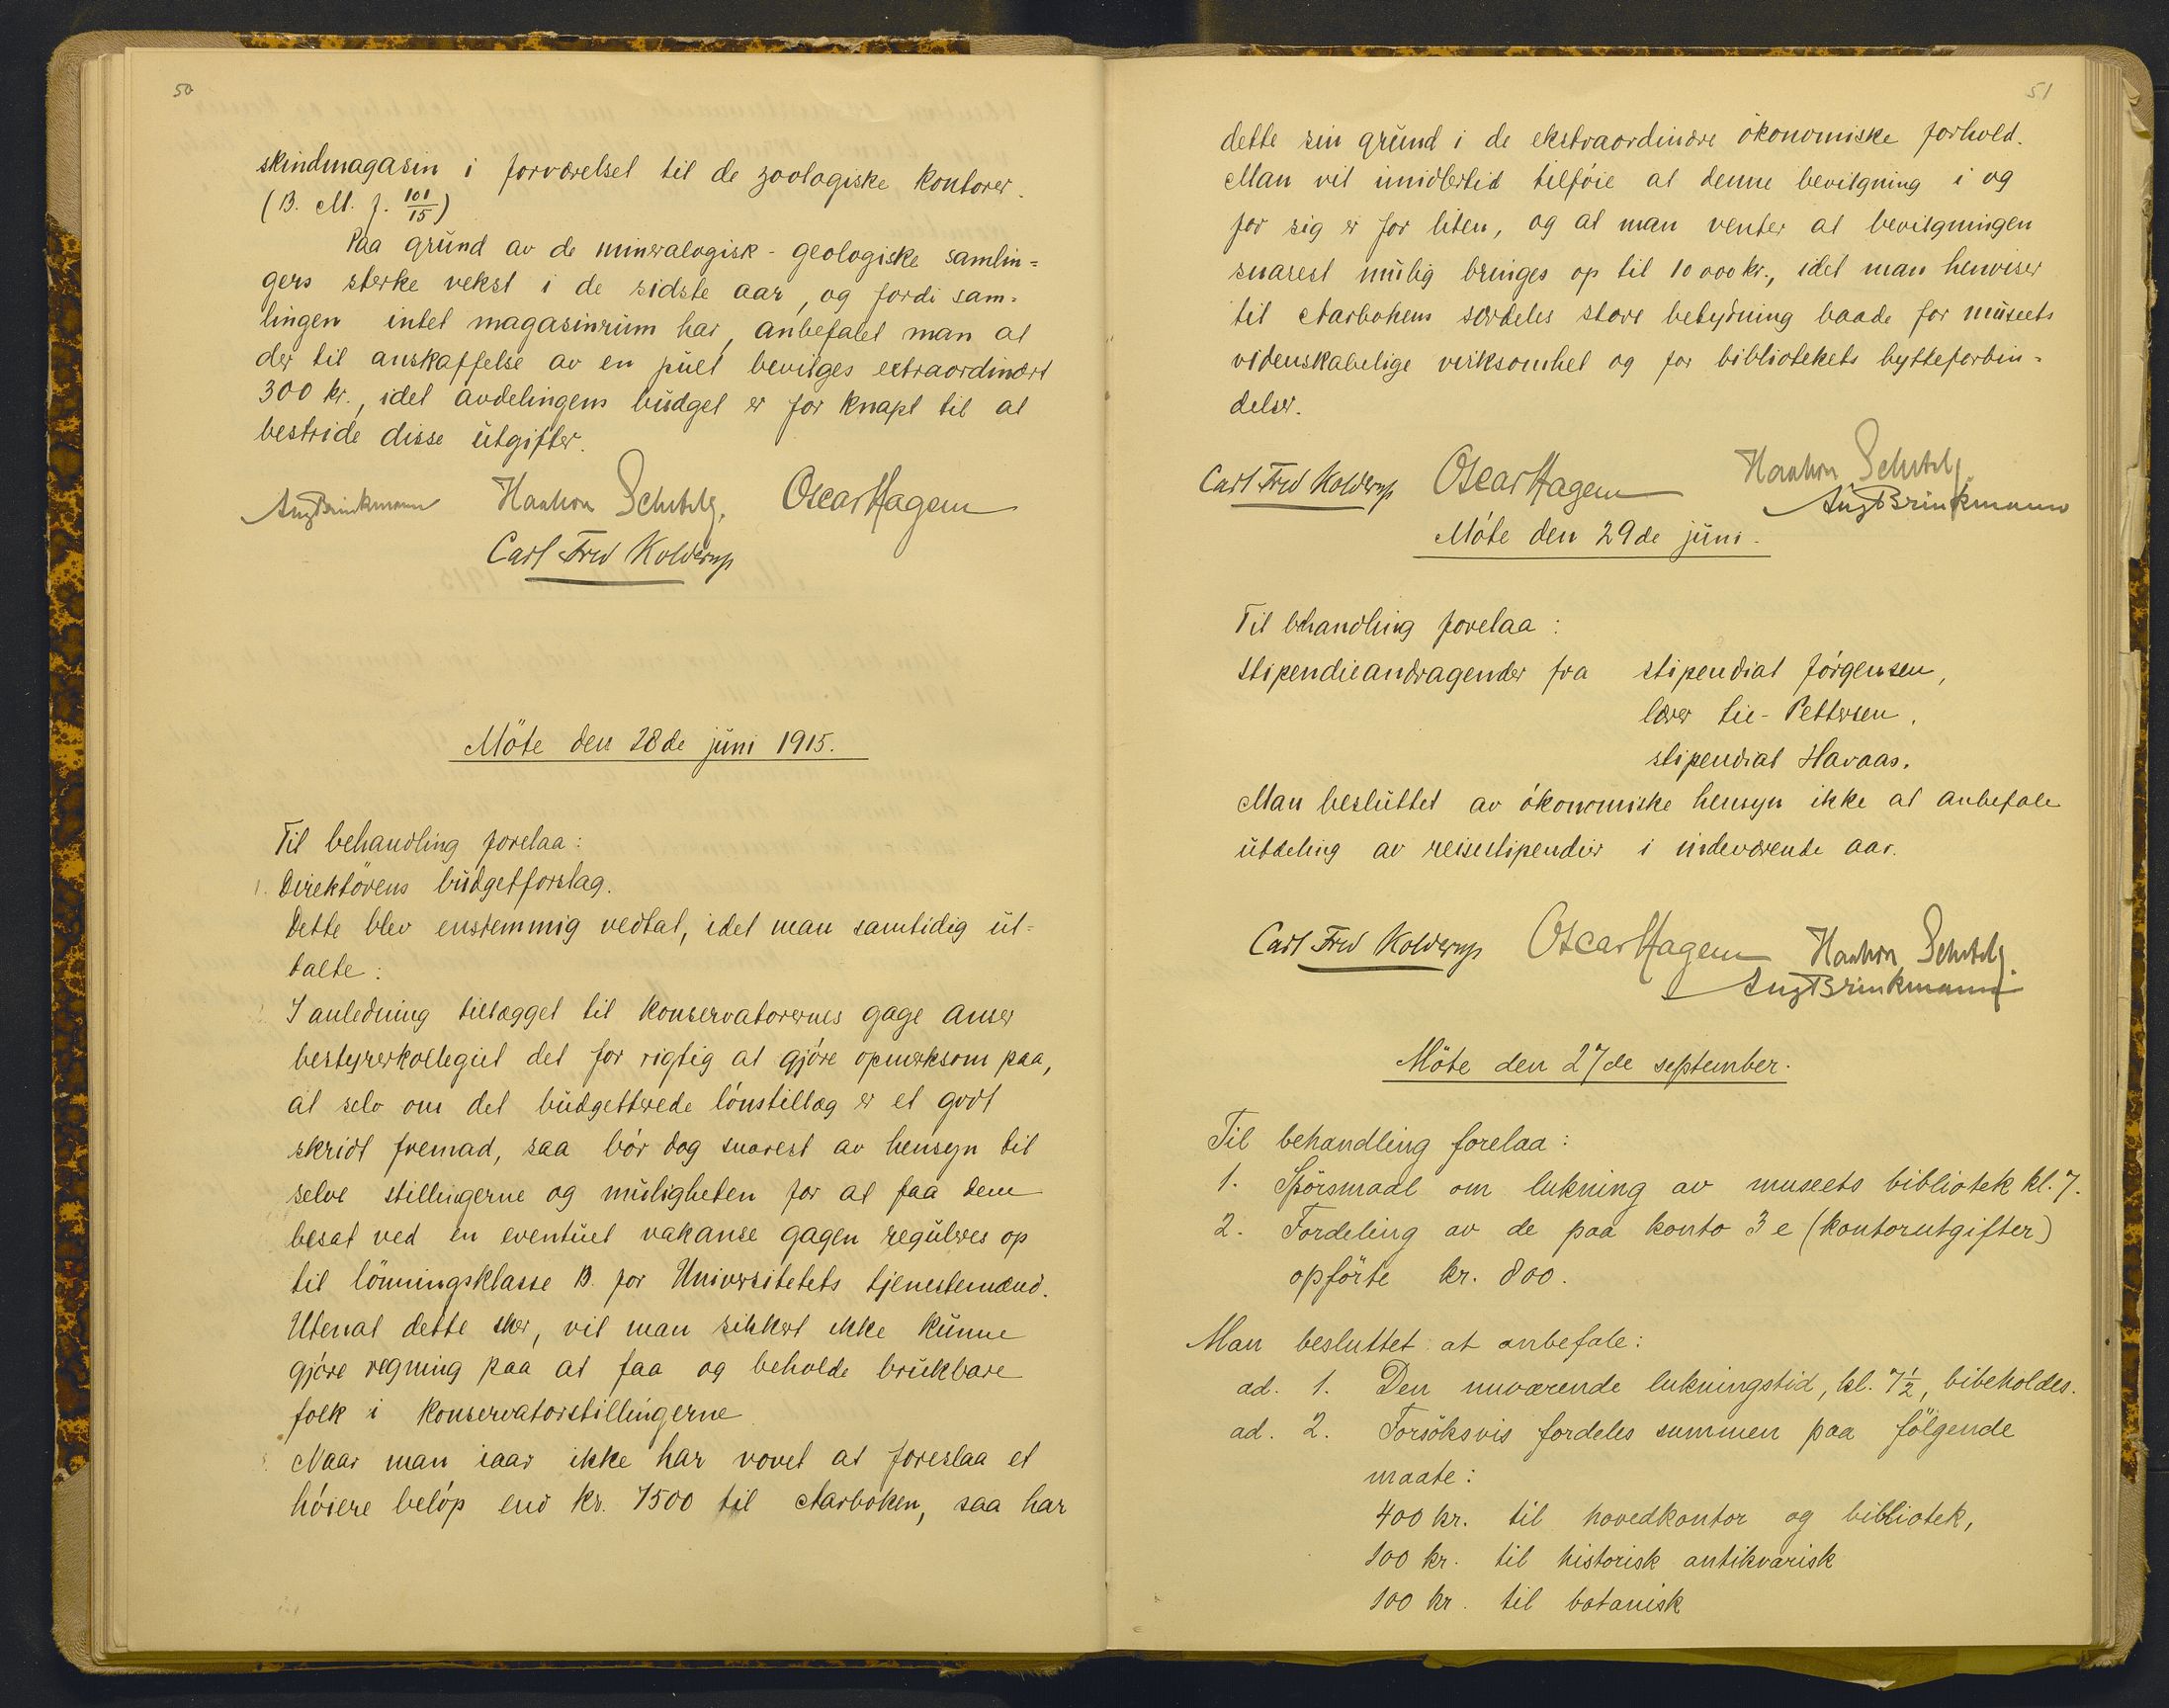 50
skindmagasin i forværelset til de zoologiske kontorer.
(B. M. J. 101/15)
Paa grund av de mineralogisk-geologiske samlin=
gers sterke vekst i de sidste aar, og fordi sam=
lingen intet magasinrum har, anbefalet man at
der til anskaffelse av en pult bevilges extraordinært
300 kr., idet avdelingens budget er for knapt til at
bestride disse utgifter.
Aug Brinkmann Haakon Schetelig. Oscar Hagem
Carl Fred Kolderup
Möte den 28de juni 1915.
Til behandling forelaa:
1. Direktörens budgetforslag.
Dette blev enstemmig vedtat, idet man samtidig ut=
talte:
I anledning tillægget til konservatorernes gage anser
bestyrerkollegiet det for rigtig at gjöre opmerksom paa,
at selv om det budgetterede lönstillæg er et godt
skridt fremad, saa bör dog snarest av hensyn til
selve stillingerne og muligheten for at faa dem
besat ved en eventuel vakanse gagen reguleres op
til lönningsklasse B. for Universitetets tjenestemænd.
Utenat dette sker, vil man sikkert ikke kunne
gjöre regning paa at faa og beholde brukbare
folk i konservatorstillingerne
Naar man iaar ikke har vovet at foreslaa et
höiere belöp end kr. 7500 til Aarboken, saa har
51
dette sin grund i de ekstraordinære ökonomiske forhold.
Man vil imidlertid tilföie at denne bevilgning i og
for sig er for liten, og at man venter at bevilgningen
snarest mulig bringes op til 10 000 kr., idet man henviser
til Aarbokens særdeles store betydning baade for museets
videnskabelige virksomhet og for bibliotekets bytteforbin=
delser.
Carl Fred Kolderup Oscar Hagem Haakon Schetelig
Aug Brinkmann
Möte den 29de juni.
Til behandling forelaa:
Stipendieandragender fra stipendiat Jörgensen,
lærer Lie-Pettersen,
stipendiat Havaas.
Man besluttet av ökonomiske hensyn ikke at anbefale
utdeling av reisestipendier i indeværende aar.
Carl Fred Kolderup Oscar Hagem Haakon Schetelig.
Aug Brinkmann
Möte den 27de september.
Til behandling forelaa:
1. Spörsmaal om lukning av museets bibliotek kl. 7.
2. Fordeling av de paa konto 3e (kontorutgifter)
opförte kr. 800.
Man besluttet at anbefale:
ad. 1. Den nuværende lukningstid, kl. 7½, bibeholdes.
ad. 2. Forsöksvis fordeles summen paa fölgende
maate:
400 kr. til hovedkontor og bibliotek,
100 kr. til historisk antikvarisk
100 kr. til botanisk